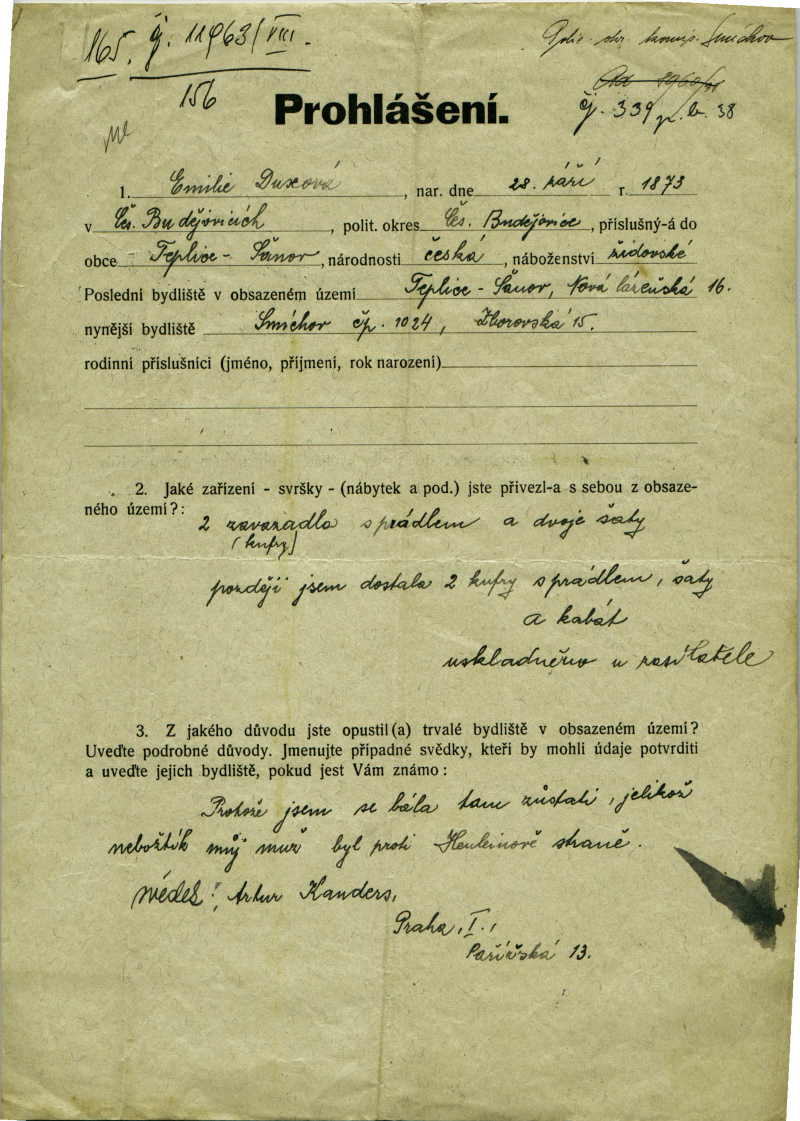 165. čj. 11963/VIII.
156
Polic. str. komis. Smíchov
čj. 339 38
Prohlášení.
1. Emilie Duxová, nar. dne 28. září r. 1873
v Čes. Budějovicích, polit. okres Čes. Budějovice, příslušný-á do
obce Teplice - Šanov, národnosti česká, náboženství židovské
Poslední bydliště v obsazeném území Teplice - Šanov, Nová lázeňská 16.
nynější bydliště Smíchov čp. 1024, Zborovská 15.
rodinní příslušníci (jméno, příjmení, rok narození)
2. Jaké zařízení - svršky - (nábytek a pod.) jste přivezl-a s sebou z obsaze-
ného území?: 2 zavazadla s prádlem a dvoje šaty
(kufry)
později jsem dostala 2 kufry s prádlem, šaty
a kabát
uskladněno u zasílatele
3. Z jakého důvodu jste opustil(a) trvalé bydliště v obsazeném území?
Uveďte podrobné důvody. Jmenujte případné svědky, kteří by mohli údaje potvrditi
a uveďte jejich bydliště, pokud jest Vám známo:
Protože jsem se bála tam zůstati, jelikož
nebožtík můj muž byl proti Henleinově straně.
svědek: Artur Kanders,
Praha, I.,
Pařížská 13.